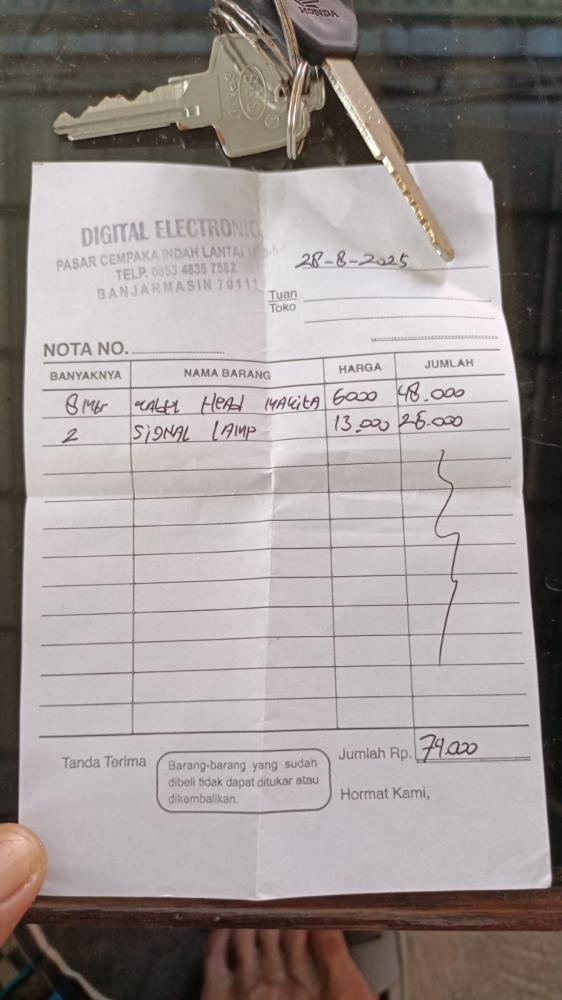 HONDA
DIGITAL ELECTRONIC
PASAR CEMPAKA INDAH LANTAI
TELP. 0853 4835 7582
BANJARMASIN 70111
28-8-2025
Tuan
Toko
NOTA NO.
BANYAKNYA NAMA BARANG HARGA JUMLAH
8 Mtr HEAD 6000 48.000
2 SIGNAL LAMP 13.000 26.000
Tanda Terima
Barang-barang yang sudah
dibeli tidak dapat ditukar atau
dikembalikan.
Jumlah Rp. 74.000
Hormat Kami,